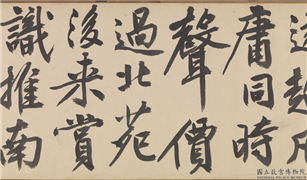 庸同時
聲價
過北苑
後来賞
識推南
國立故宮博物院
NATIONAL PALACE MUSEUM